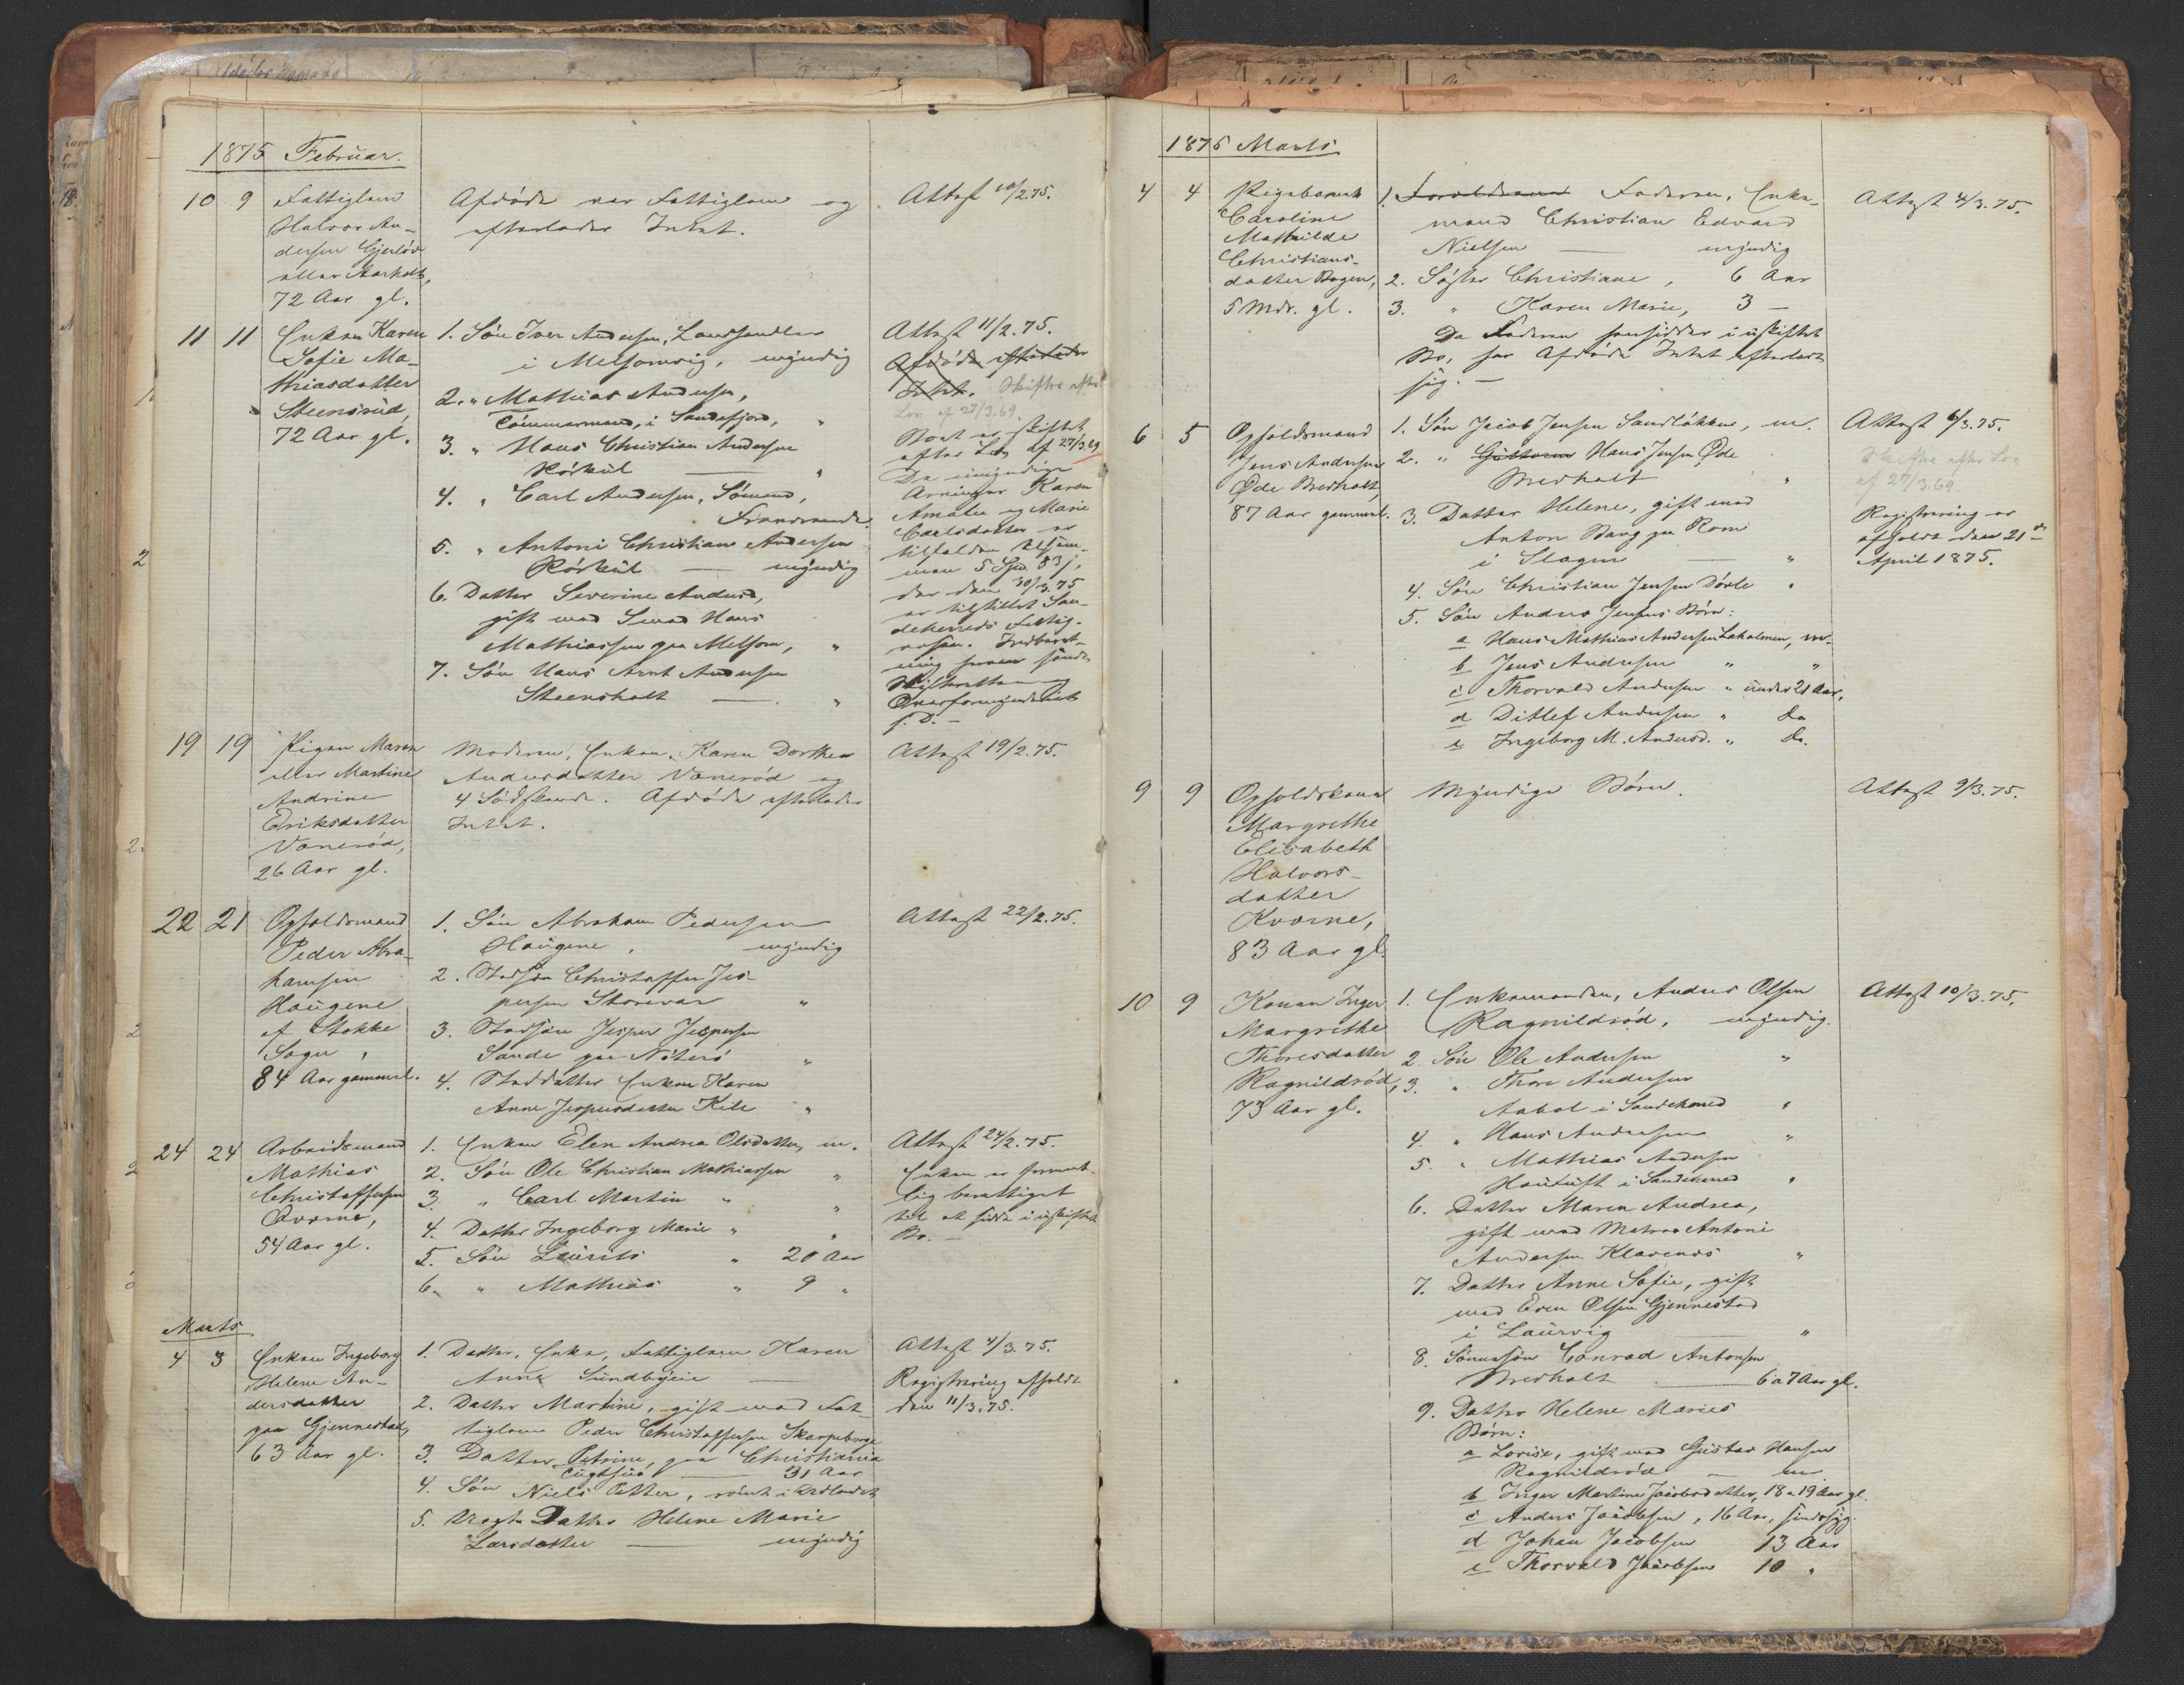 1875 Februar.
10 9 Fattiglem
Halvor An-
dersen Gjerlöv
eller Aarholt,
72 Aar gl.
Afdöde var Fattiglem og
efterlader Intet.
Attest 10/2.75.
11 11 Enken Karen
Sofie Ma-
thiasdatter
Steensrud,
72 Aar gl.
1. Sön Iver Andersen, Landhandler
i Melsomvig, myndig
2. " Mathias Andersen,
Tömmermand, i Sandefjord, "
3. " Hans Christian Andersen
Rörkül "
4. " Carl Andersen, Sömand,
5. " Antoni Christian Andersen
Rörkül myndig
6. Datter Severine Andersd,
gift med Smed Hans
Mathiassen paa Melsom, "
7. Sön Hans Arnt Andersen
Steensholt "
Attest 11/2.75.
Afdöde efterlader
Intet. Skiftes efter
Lov af 27/3.69.
Boet er skiftet
efter Lov af 27/3.69
De umyndige
Arvinger Karen
Amalie og Marie
Carlsdatter er
tilfalden tilsam-
men 5 Spd 83 ,
der den 30/3.75
er tilstillet San-
deherreds Fattig-
væsen. Indberet-
ning
Skifteretten og
Overformynderiet
s. D. -
19 19 Pigen Maren
eller Martine
Andrine
Eriksdatter
Vænerød,
26 Aar gl.
Moderen, Enken Karen Dorthea
Andersdatter Vænerød og
4 Södskende. Afdöde efterlader
Intet.
Attest 19/2.75.
22 21 Opholdsmand
Peder Abra-
hamsen
Haugene
af Stokke
Sogn,
84 Aar gammel.
1. Sön Abraham Pedersen
Haugene, myndig
2. Stedsön Christoffer Jes-
persen Storevar "
3. Stedsön Jesper Jespersen
Sande paa Nöterö "
4. Steddatter Enken Karen
Anne Jespersdatter Kile "
Attest 22/2.75.
24 24 Arbeidsmand
Mathias
Christoffersen
Qværne,
54 Aar gl.
1. Enken Elen Andrea Olsdatter, m.
2. Sön Ole Christian Mathiassen "
3. " Carl Martin " "
4. Datter Ingeborg Marie " "
5. Sön Laurits " 20 Aar
6. " Mathias " 9 "
Attest 24/2.75.
Enken er forment-
lig berettiget
til at sidde i uskiftet
Bo. -
Marts
4 3 Enken Ingeborg
Helene An-
dersdatter
paa Gjennestad,
63 Aar gl.
1. Datter, Enke, Fattiglem Karen
Anne Sundbyeie
2. Datter Martine, gift med Fat-
tiglem Peder Christoffersen Skarpeborge
3. Datter Petrine, paa Christiania
Tugthus 31 Aar
4. Sön Niels Petter, reist i Udlandet
5. Uægte Datter Helene Marie
Larsdatter myndig
Attest 4/3.75.
Registrering afholdt
den 11/3.75.
1875 Marts
4 4 Pigebarnet
Caroline
Mathilde
Christians-
datter Bogen,
5 Mdr. gl.
1. Forældrene Faderen, Enke-
mand Christian Edvard
Nielsen myndig
2. Söster Christiane, 6 Aar
3. " Karen Marie, 3 -
Da Faderen hensidder i uskiftet
Bo, har Afdöde Intet efterladt
sig. -
Attest 4/3.75.
6 5 Opholdsmand
Jens Andersen
Øde Breholt,
87 Aar gammel.
1. Sön Jacob Jensen Sandlökken, m.
2. " Guttorm Hans Jensen Øde
Breholt "
3. Datter Helene, gift med
Anton Bang paa Rom
i Slagen "
4. Sön Christian Jensen Dörle "
5. Sön Anders Jensens Börn:
a Hans Mathias Andersen Lakolmen, m.
b Jens Andersen " "
c Thorvald Andersen " under 21 Aar,
d Ditlef Andersen " Do
e Ingeborg M. Andersd. " Do.
Attest 6/3.75.
Skiftes efter Lov
af 27/3.69.
Registrering er
afholdt den 21de
April 1875.
9 9 Opholdskone
Margrethe
Elisabeth
Halvors-
datter
Kværne,
83 Aar gl.
Myndige Börn.
Attest 9/3.75.
10 9 Konen Inger
Margrethe
Thoresdatter
Ragnildröd,
73 Aar gl.
1. Enkemanden, Anders Olsen
Ragnildröd, myndig.
2. Sön Ole Andersen "
3. " Thore Andersen
Aabol i Sandeherred "
4. " Hans Andersen "
5. " Mathias Andersen
i Sandeherred "
6. Datter Maren Andrea,
gift med Matros Antoni
Andersen Klavenæs "
7. Datter Anne Sofie, gift
med Even Olsen Gjennestad
i Laurvig "
8. Sönnesön Conrad Antonsen
Breholt 6 a 7 Aar gl.
9. Datter Helene Maries
Börn:
a Lovise, gift med Gustav Hansen
Ragnildröd m
b Inger Martine Jacobsdatter, 18 a 19 Aar gl.
c Anders Jacobsen, 16 Aar, sindssyg.
d Johan Jacobsen 13 Aar
e Thorvald Jacobsen 10 "
Attest 10/3.75.